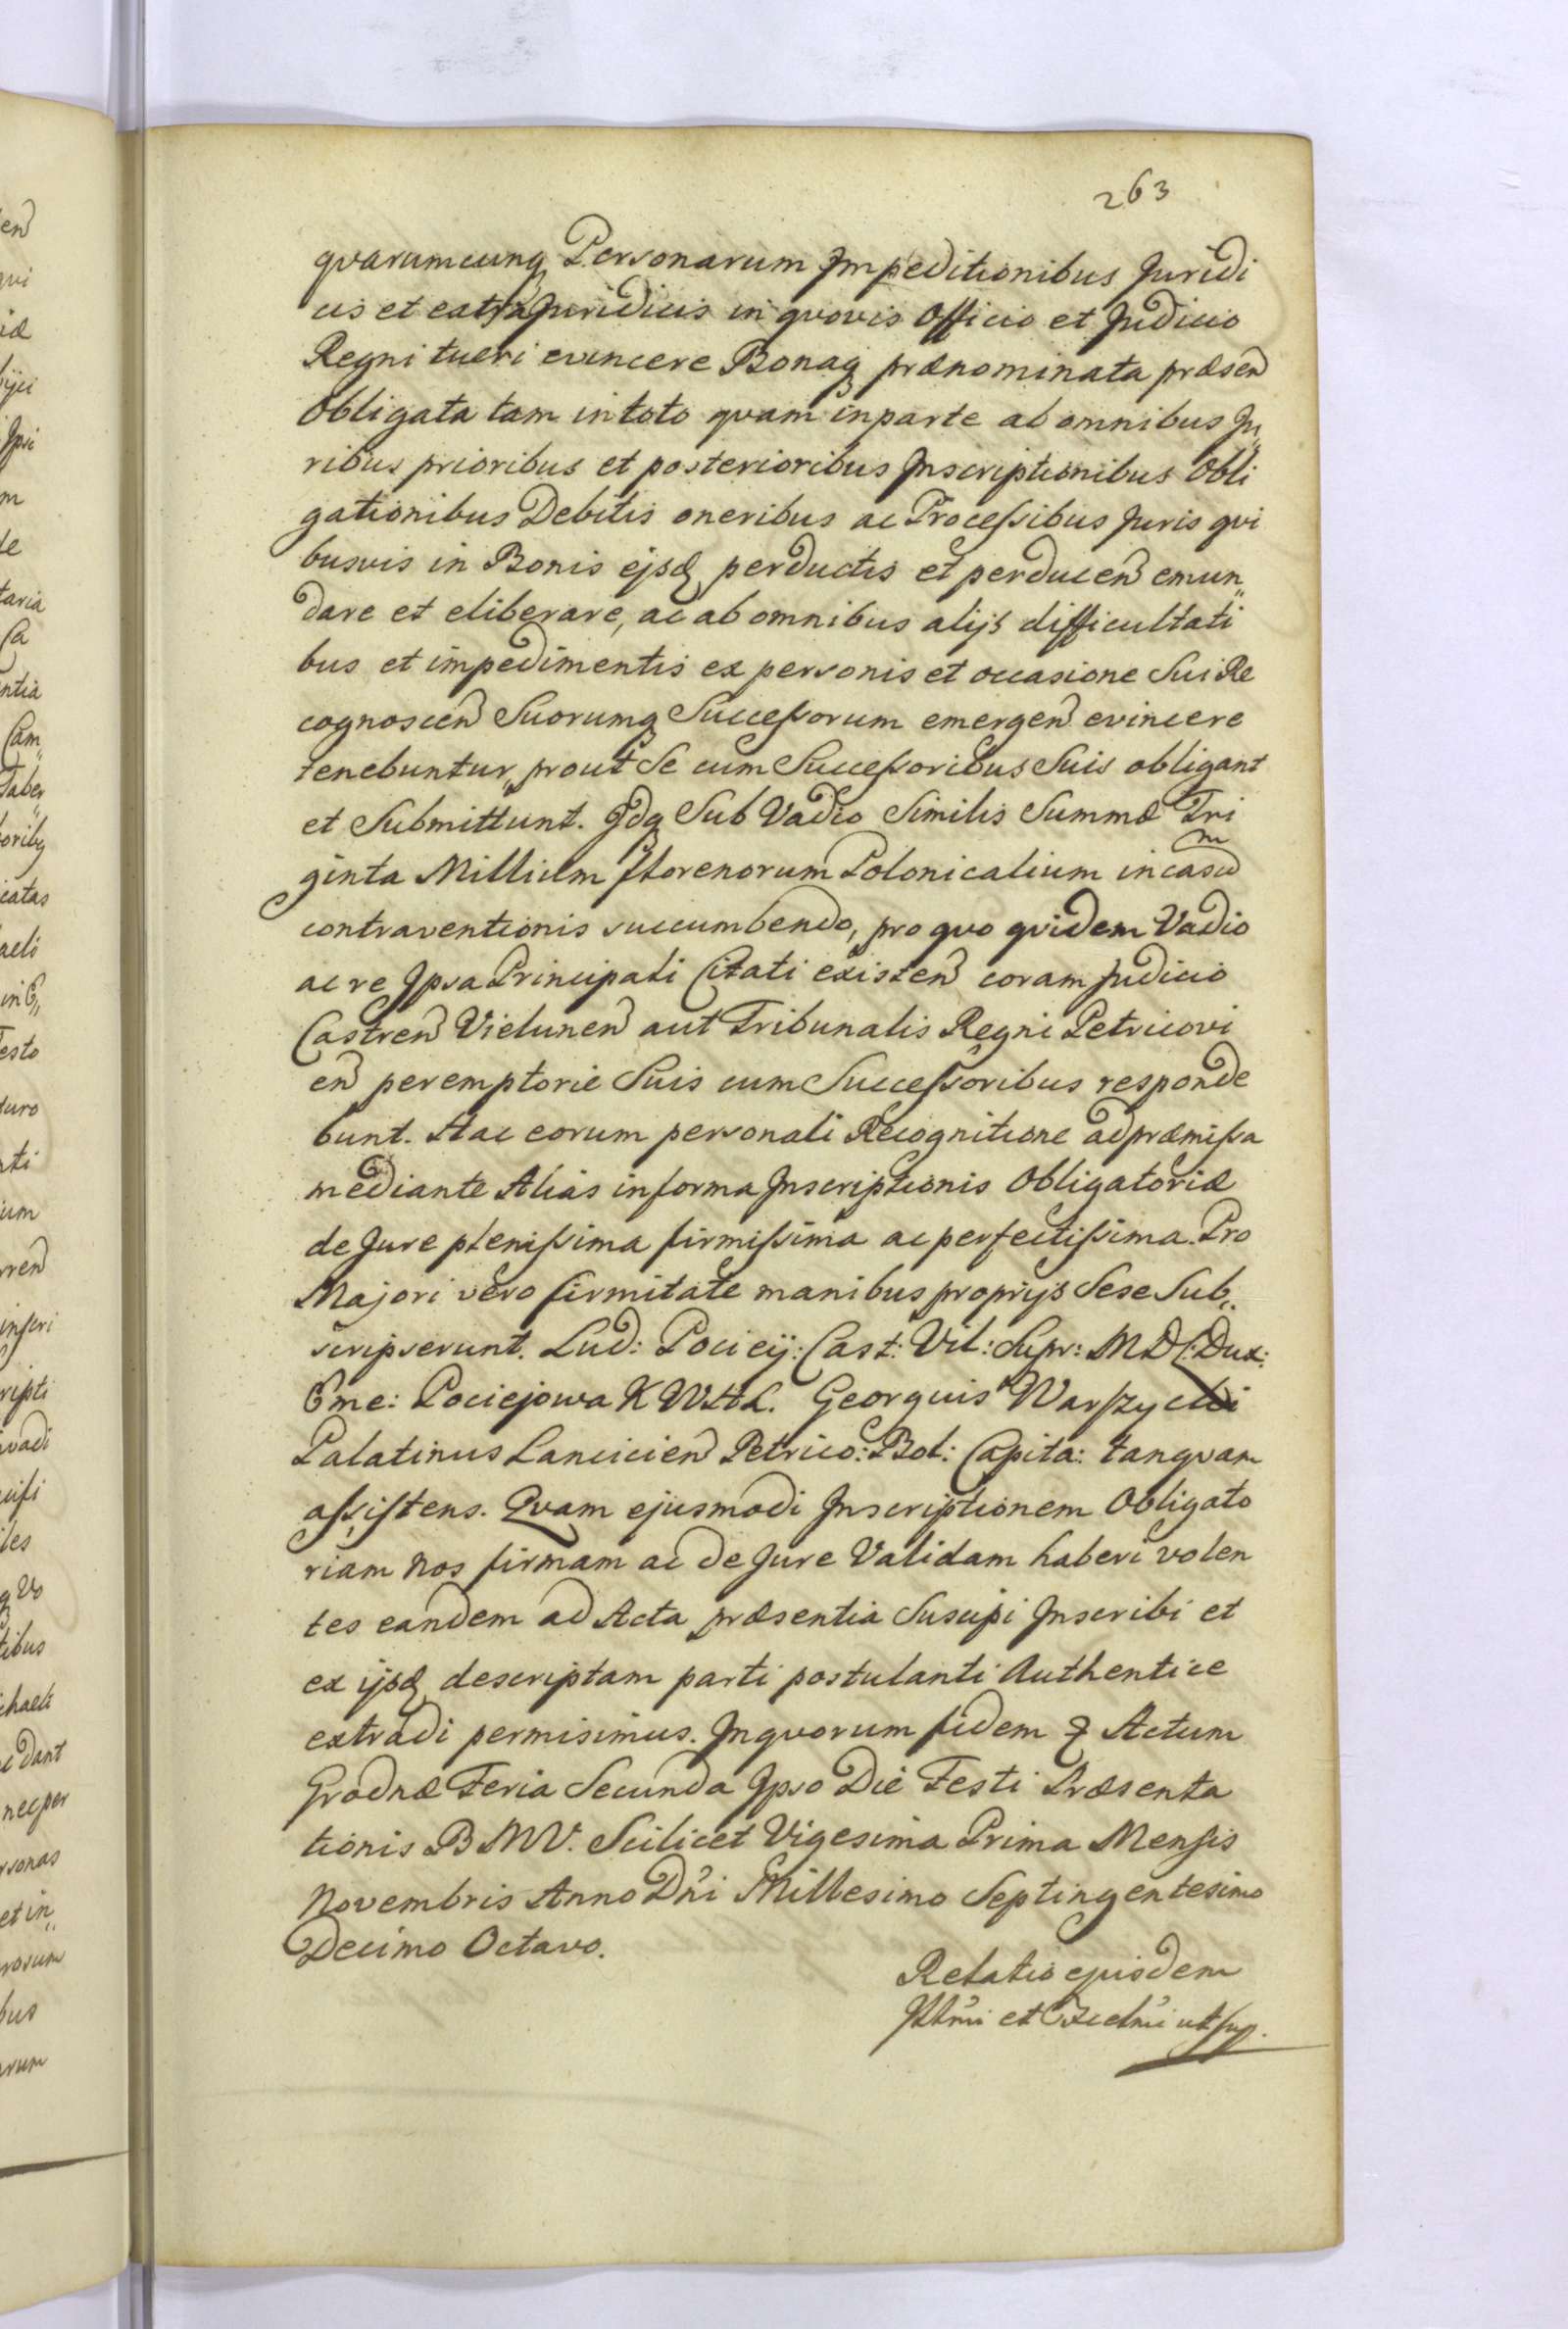 263
qvarumcunq Personarum Impeditionibus Juridi
cis et extra Juridicis in qvovis Officio et Judicio
Regni tueri evincere Bonaq prænominata præsen
Obligata tam in toto qvam in parte ab omnibus Ju„
ribus prioribus et posterioribus Inscriptionibus Obli
gationibus Debitis oneribus ac Processibus Juris qvi
busvis in Bonis ejsd perductis et perducen emun„
dare et eliberare, ac ab omnibus alijs difficultati
bus et impedimentis ex personis et occasione Sui Re
cognoscen Suorumq Successorum emergen evincere
tenebuntur, prout Se cum Successoribus Suis obligant
et Submittunt. Idq Sub Vadio Similis Summæ Tri
ginta Millium Florenorum Polonicalium in casum
contraventionis succumbendo, pro qvo qvidem Vadio
ac re Ipsa Principali Citati existen coram Judicio
Castren Vielunen aut Tribunalis Regni Petricovi
en peremptorie Suis cum Successoribus responde
bunt. Hac eorum personali Recognitione ad præmissa
mediante Alias in forma Inscriptionis Obligatoriæ
de Jure plenissima firmissima ac perfectissima. Pro
Majori vero firmitate manibus proprijs Sese Sub„
scripserunt. Lud: Pociey: Cast: Vil: Supr: M D L: Dux:
Eme: Pociejowa K W H L. Georguis Warszycki
Palatinus Lancicien Petrico: Bol: Capita: tanqvam
assistens. Qvam ejusmodi Inscriptionem Obligato
riam Nos firmam ac de Jure Validam haberi volen
tes eandem ad Acta præsentia Suscipi Inscribi et
ex ijsd descriptam parti postulanti Authentice
extradi permisimus. In qvorum fidem Actum
Grodnæ Feria Secunda Ipso Die Festi Præsenta
tionis B M V. Scilicet Vigesima Prima Mensis
Novembris Anno Dni Millesimo Septingentesimo
Decimo Octavo.
Relatio ejusdem
Illmi et Excelmi ut sup.